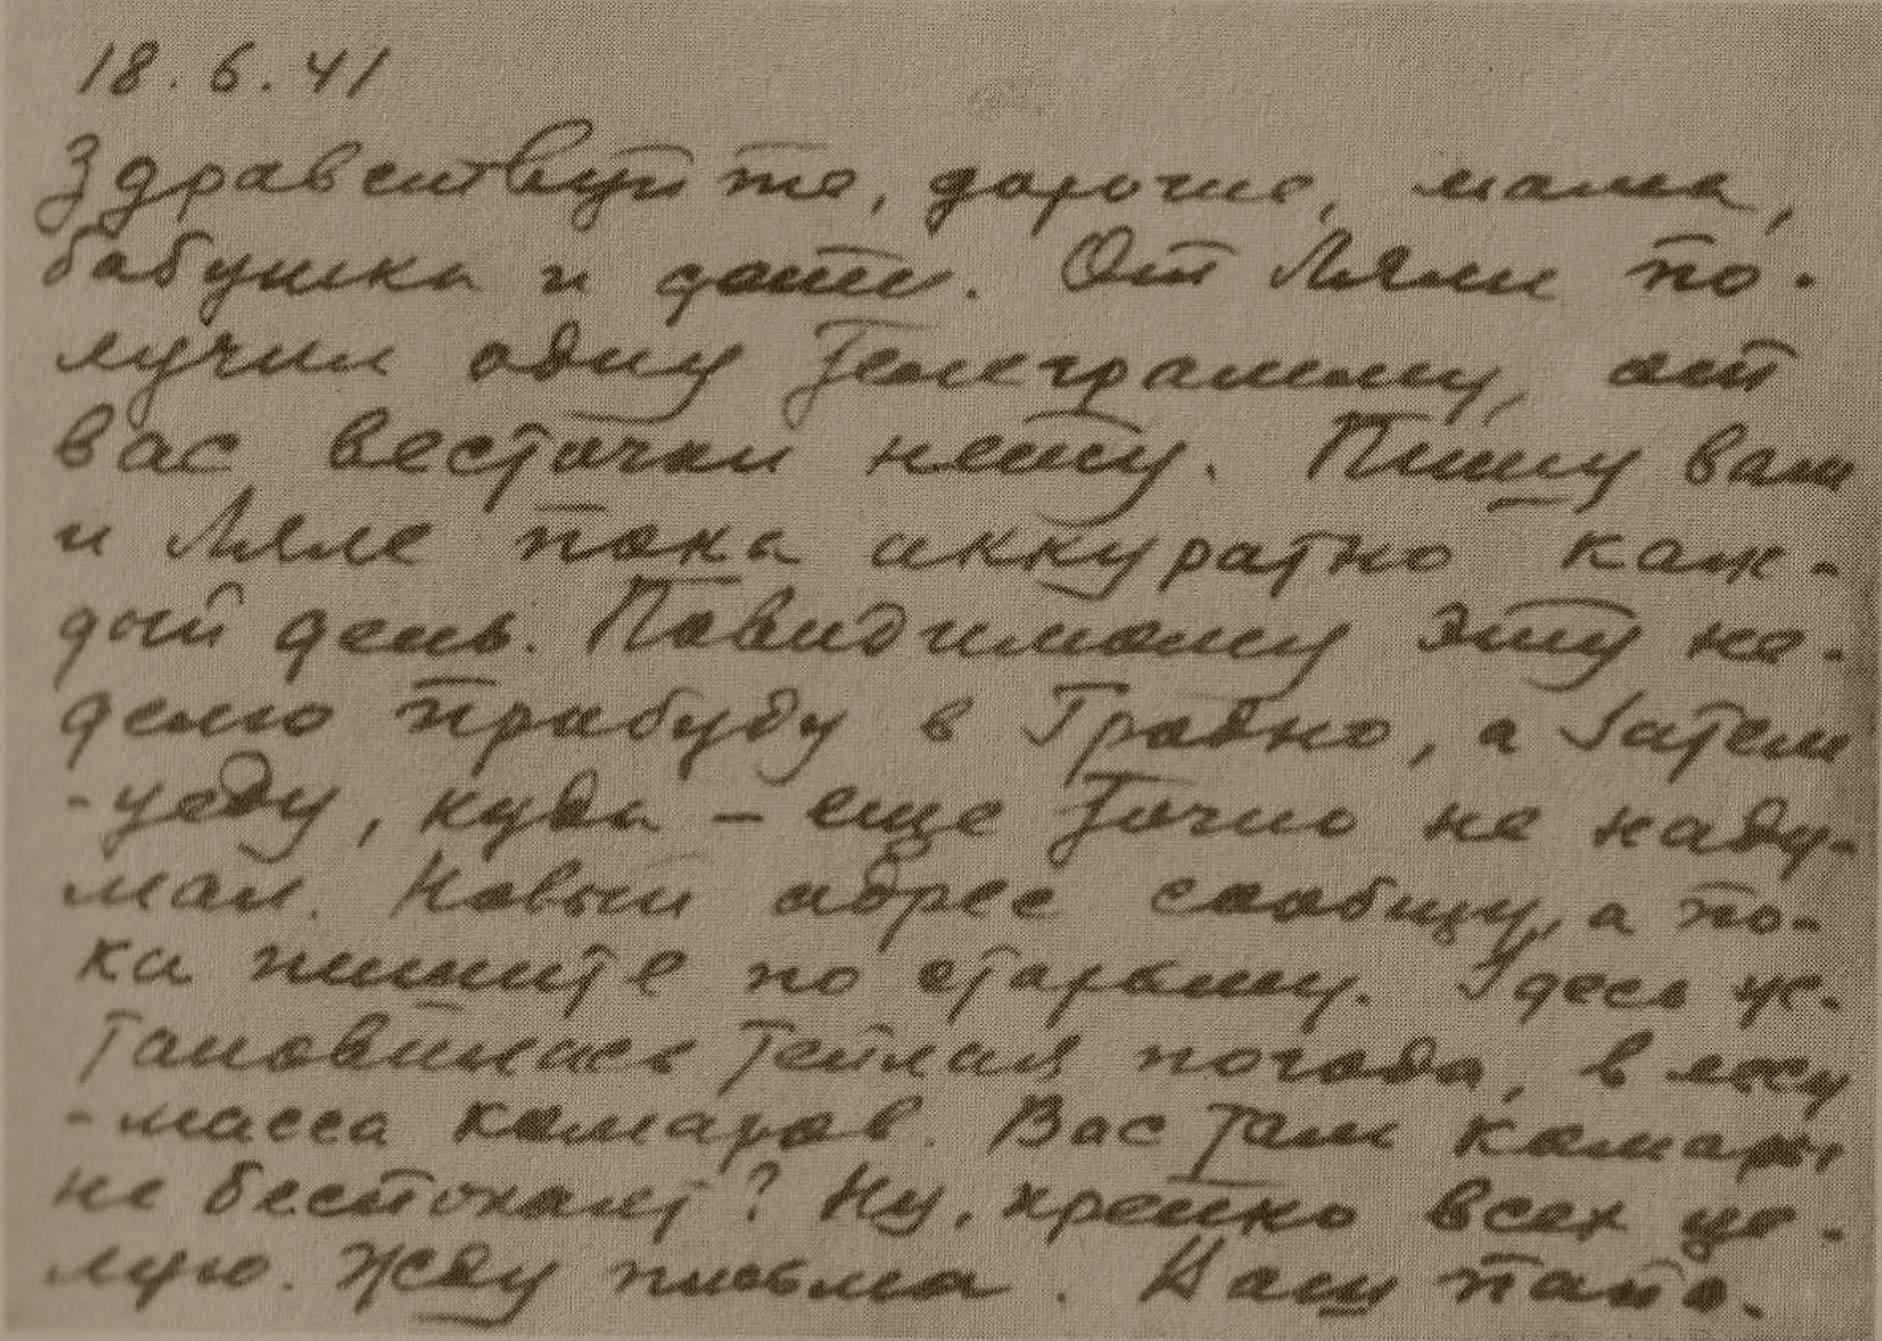 18.6.41
Здравствуйте, дорогие, мама,
бабушка и дети. От Ляли по-
лучил одну телеграмму, от
вас весточки нету. Пишу вам
и Ляле пока аккуратно каж-
дый день. Повидимому эту не-
делю пробуду в Гродно, а затем
- уеду, куда – еще точно не наду-
мал. Новый адрес сообщу, а по-
ка пишите по старому. Здесь ус-
тановилась теплая погода, в лесу
- масса комаров. Вас там комары
не беспокоят? Ну, крепко всех це-
лую. Жду письма. Ваш папа.